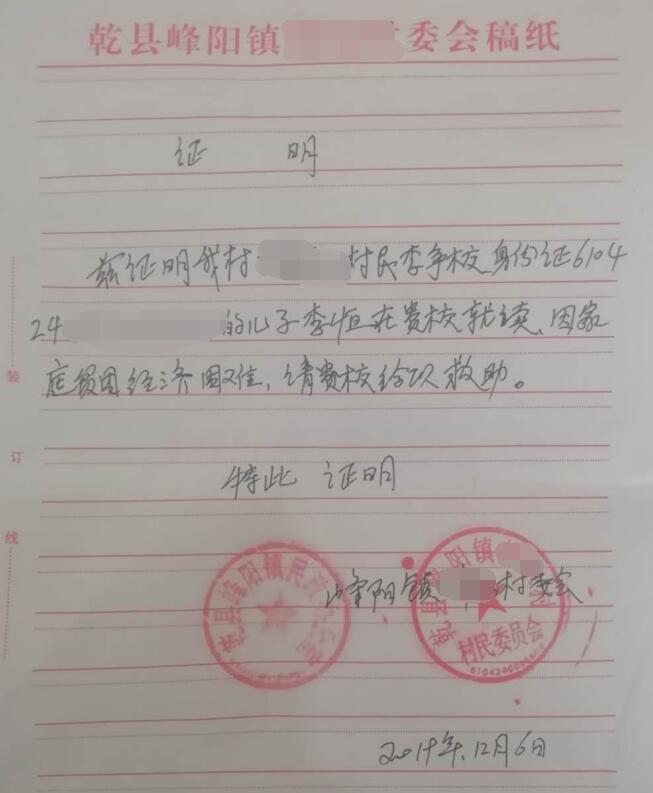 乾县峰阳镇 委会稿纸
证 明
兹证明我村 村民李争校身份证6104
24 的儿子李恒在贵校就读、因家
庭贫困经济困难,请贵校给予救助。
特此 证明
峰阳镇 村委会
乾县峰阳镇民政
乾县峰阳镇 村
村民委员会
2019年12月6日
装
订
线